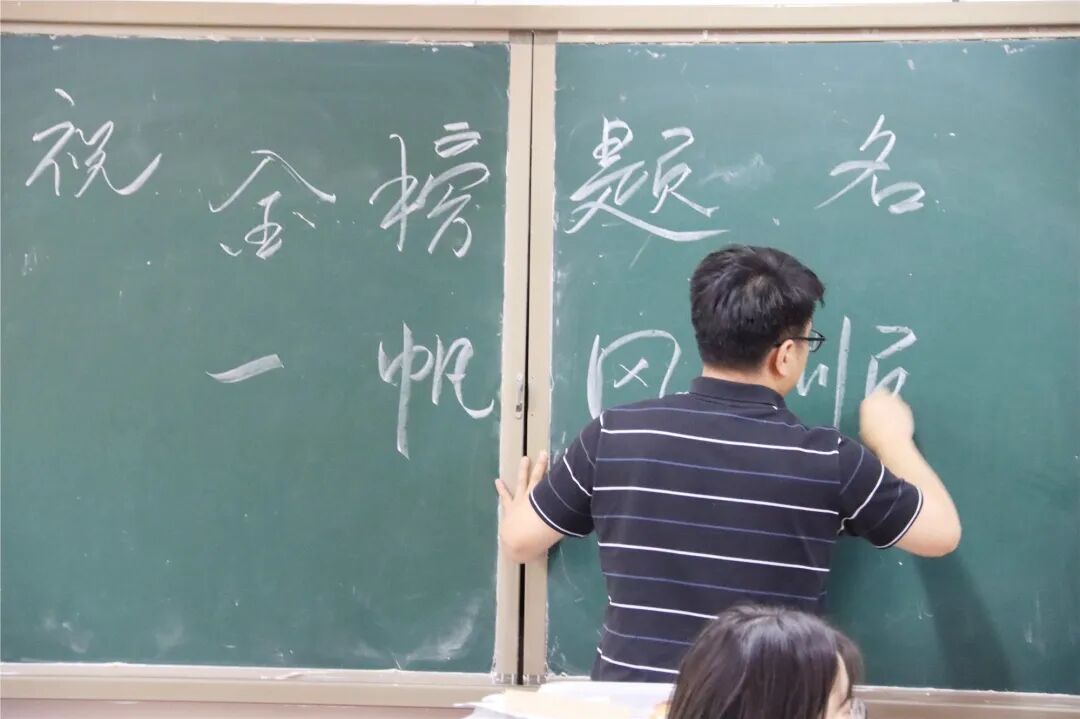 祝金榜题名
一帆风顺